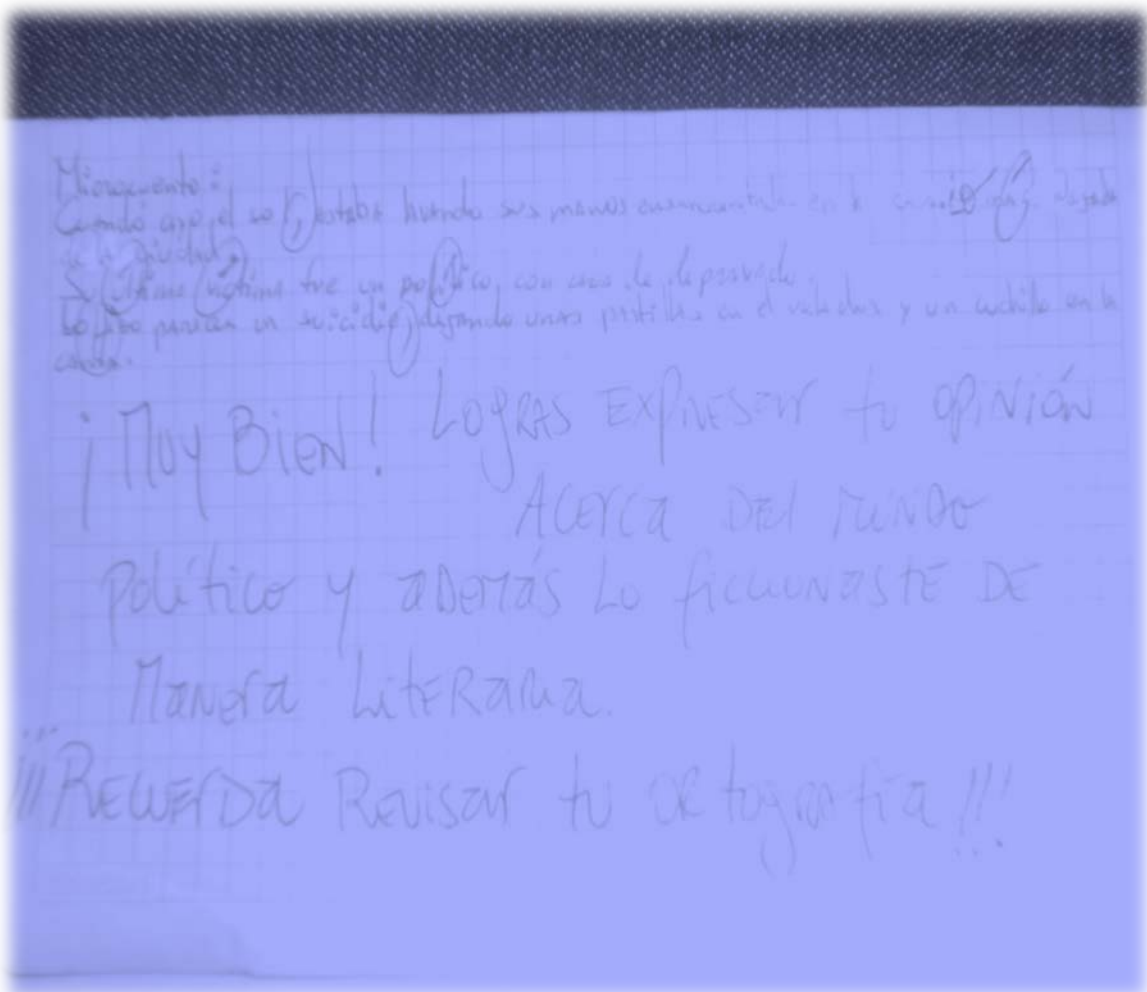 Microcuento:
Cuando cayó el sol, estaba lavando sus manos ensangrentadas en la alejada
de la ciudad.
Su última víctima fue un político, con cara de depravado.
Lo hizo parecer un suicidio, dejando unas pastillas en el velador y un cuchillo en la
cama.
¡MUY BIEN! LOGRAS EXPRESAR tu OPINIÓN
ACERCA DEL MUNDO
Político y ADEMÁS LO ficcionASTE DE
MANERA LitERARIA.
¡¡¡RECUERDA REVISAR tu ORtografía!!!